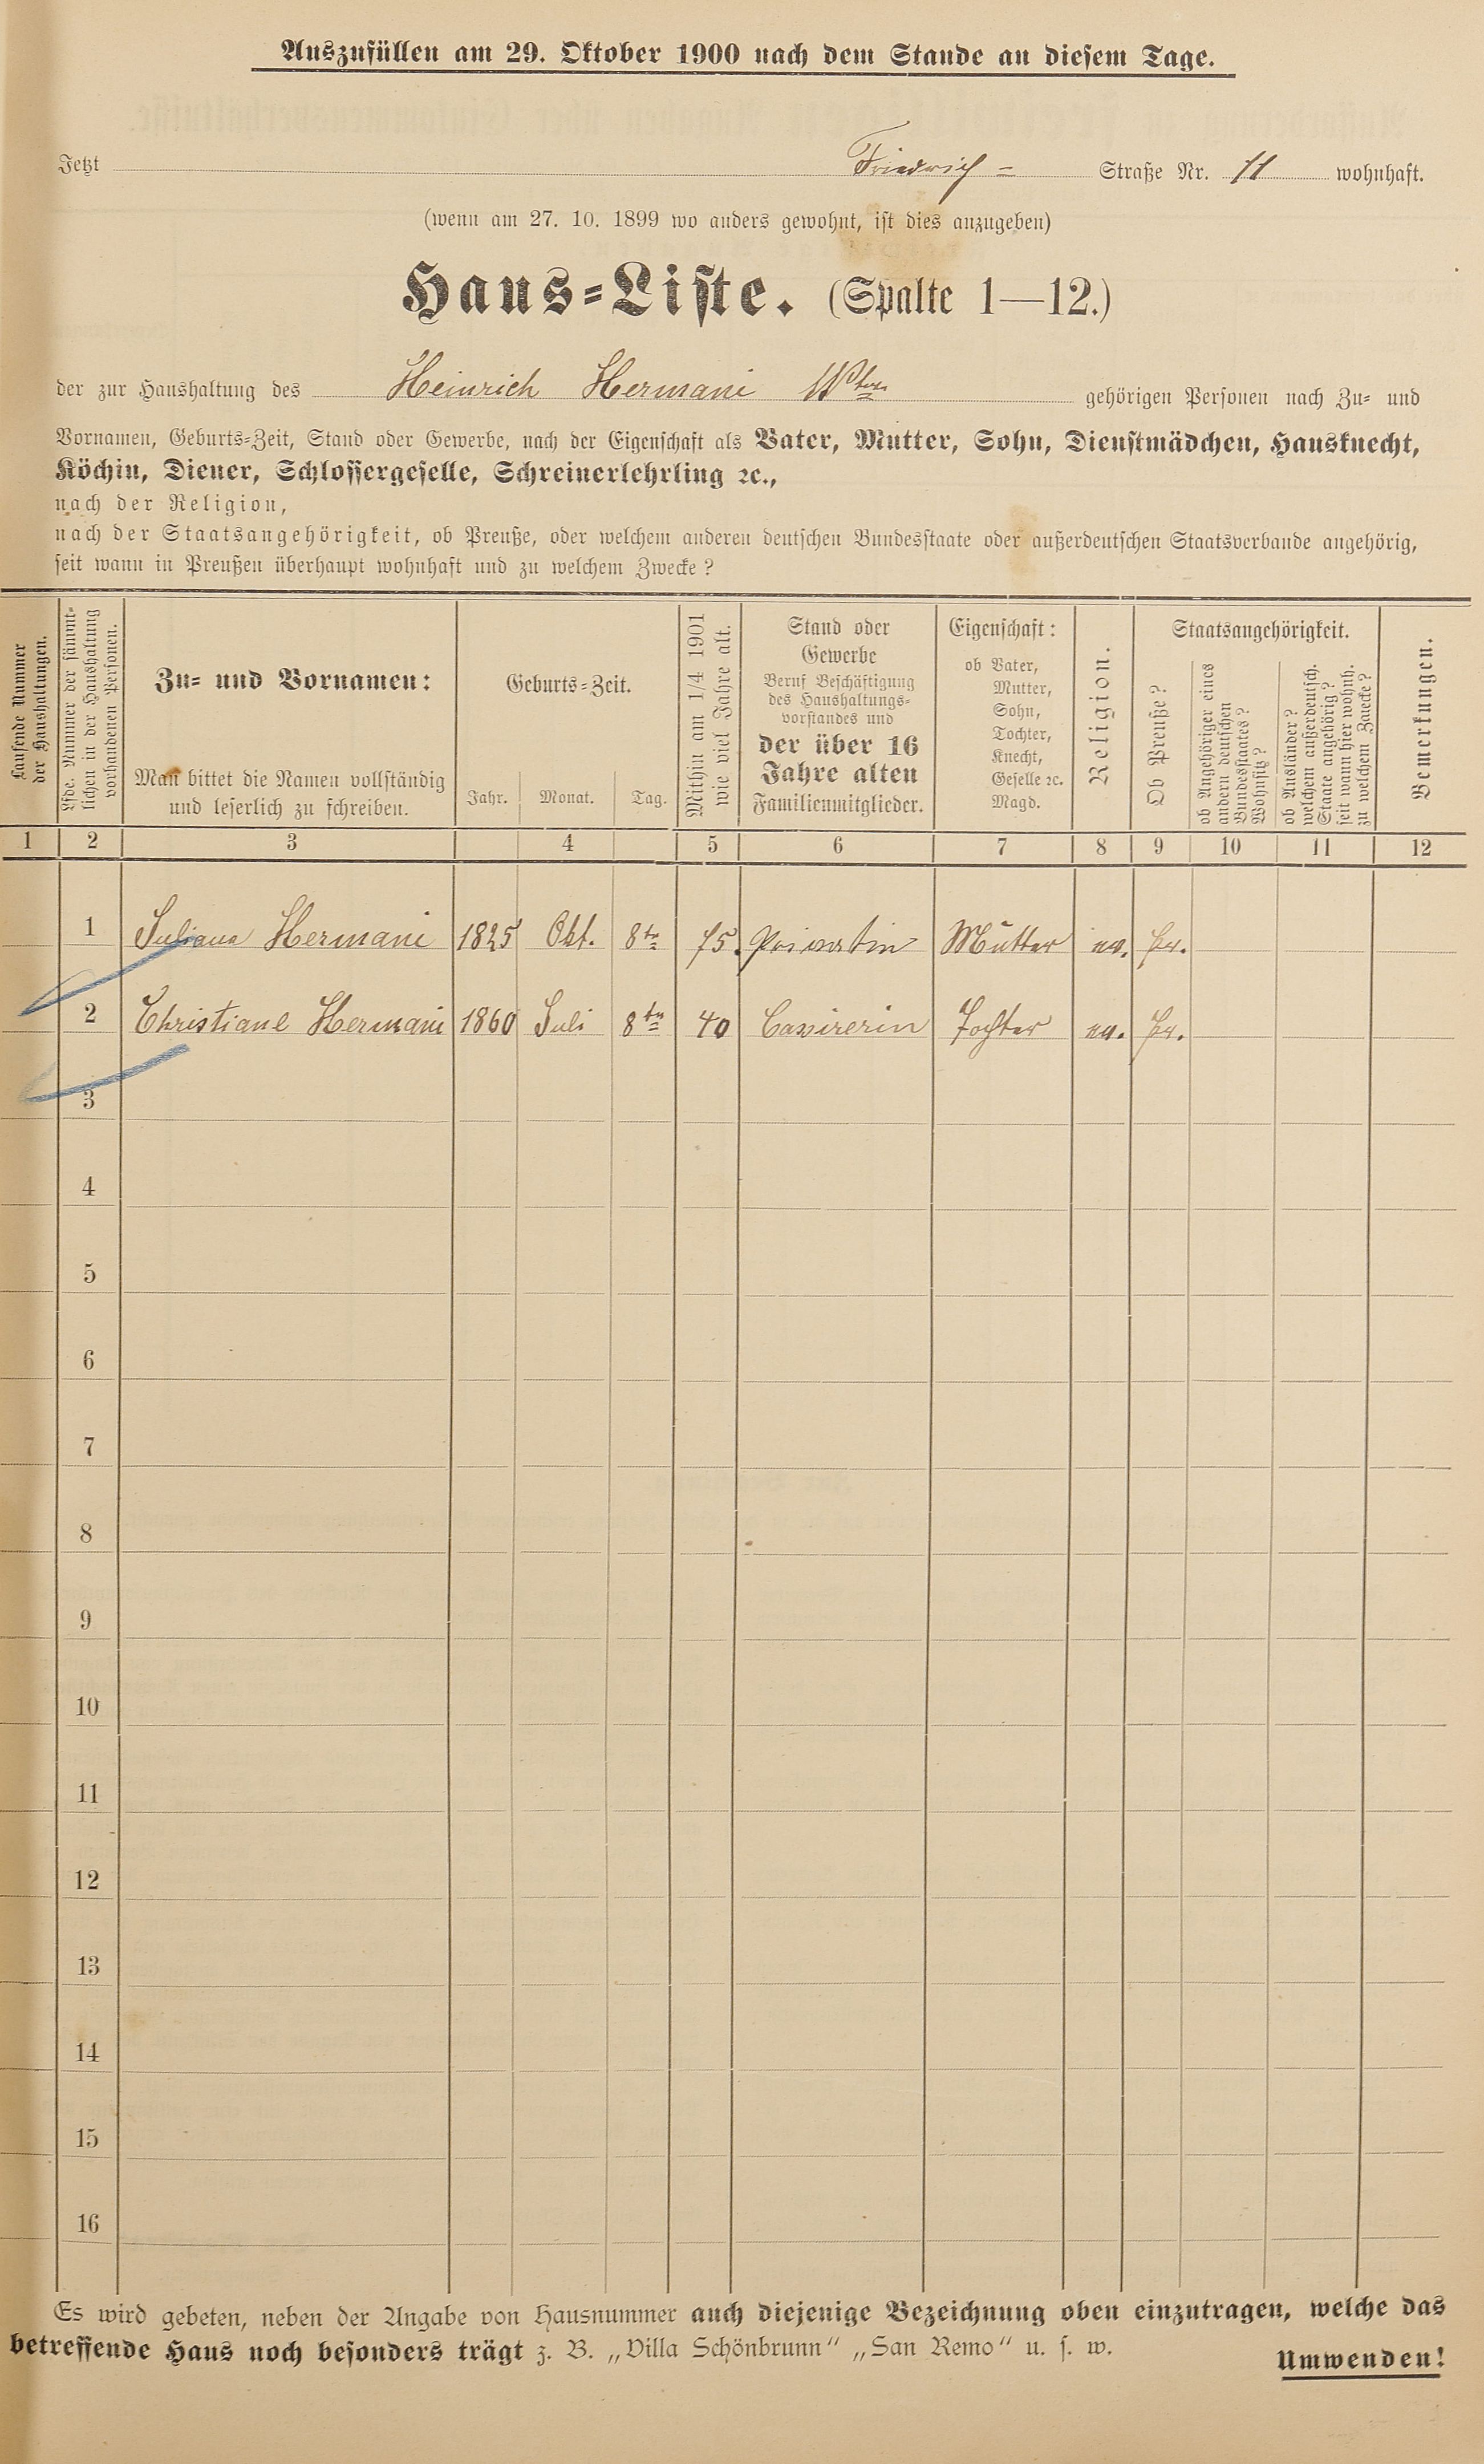 Auszufüllen am 29. Oktober 1900 nach dem Stande an diesem Tage.
Jetzt Friedrich- Straße Nr. 11 wohnhaft.
(wenn am 27. 10. 1899 wo anders gewohnt, ist dies anzugeben)
Haus-Liste. (Spalte 1—12.)
der zur Haushaltung des Heinrich Hermani gehörigen Personen nach Zu- und
Vornamen, Geburts-Zeit, Stand oder Gewerbe, nach der Eigenschaft als Vater, Mutter, Sohn, Dienstmädchen, Hausknecht,
Köchin, Diener, Schlossergeselle, Schreinerlehrling ꝛc.,
nach der Religion,
nach der Staatsangehörigkeit, ob Preuße, oder welchem anderen deutschen Bundesstaate oder außerdeutschen Staatsverbande angehörig,
seit wann in Preußen überhaupt wohnhaft und zu welchem Zwecke?
Laufende Nummer
der Haushaltungen.
Lfde. Nummer der sämmt-
lichen in der Haushaltung
vorhandenen Personen.
Zu- und Vornamen:
Man bittet die Namen vollständig
und leserlich zu schreiben.
Geburts-Zeit.
Jahr. Monat. Tag.
Mithin am 1/4 1901
wie viel Jahre alt.
Stand oder
Gewerbe
Beruf Beschäftigung
des Haushaltungs-
vorstandes und
der über 16
Jahre alten
Familienmitglieder.
Eigenschaft:
ob Vater,
Mutter,
Sohn,
Tochter,
Knecht,
Geselle ꝛc.
Magd.
Religion.
Staatsangehörigkeit.
Ob Preuße?
ob Angehöriger eines
andern deutschen
Bundesstaates?
Wohnsitz?
ob Ausländer?
welchem außerdeutsch.
Staate angehörig?
seit wann hier wohnh.
zu welchem Zwecke?
Bemerkungen.
1 2 3 4 5 6 7 8 9 10 11 12
1 Juliana Hermani 1825 Okt. 8te 75. Privatin Mutter ev. Pr.
2 Christiane Hermani 1860 Juli 8te 40 Casirerin Tochter ev. Pr.
3
4
5
6
7
8
9
10
11
12
13
14
15
16
Es wird gebeten, neben der Angabe von Hausnummer auch diejenige Bezeichnung oben einzutragen, welche das
betreffende Haus noch besonders trägt z. B. „Villa Schönbrunn“ „San Remo“ u. s. w.
Umwenden!